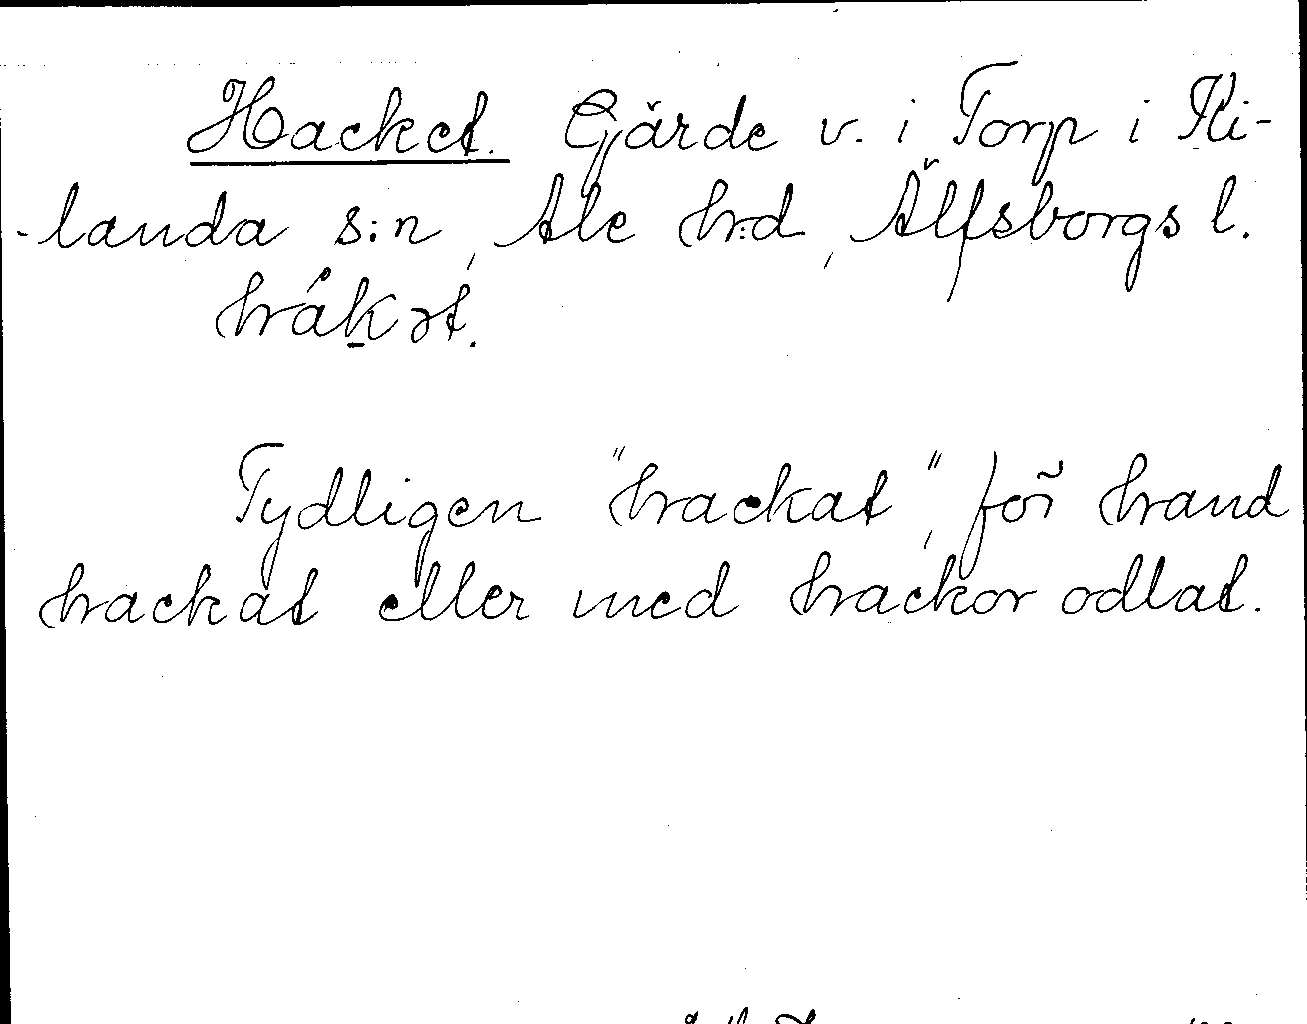 Hacket. Gärde v. i Torp i Ki-
-landa s:n, Ale h:d, Älfsborgs l.
håkət.
Tydligen "hackat", för hand
hackat eller med hackor odlat.